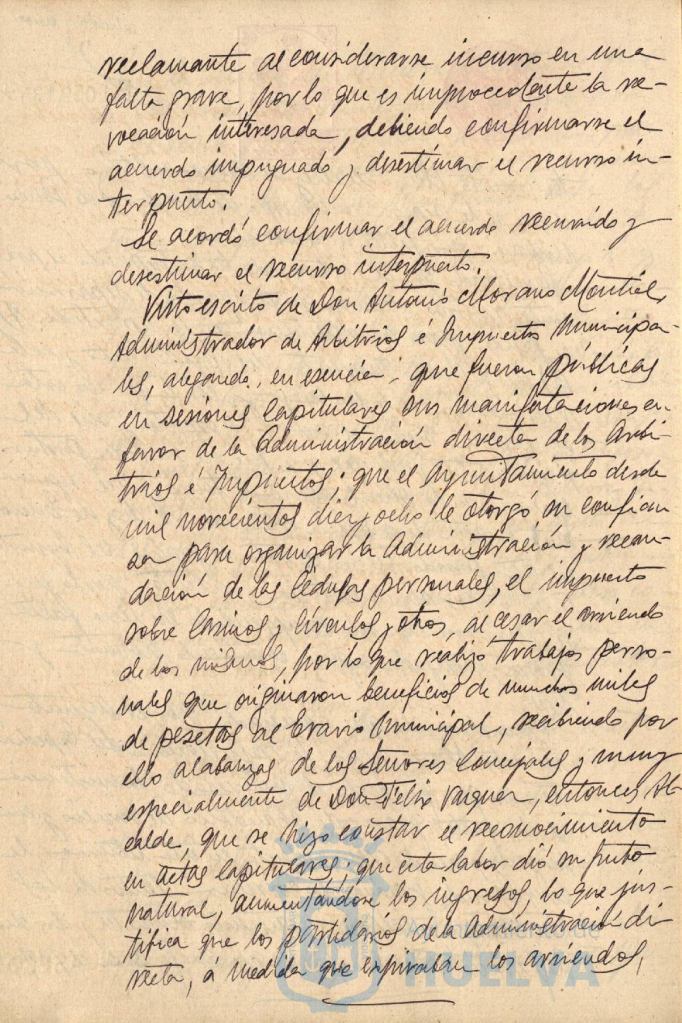 reclamante al considerarse incurso en una
falta grave, por lo que es improcedente la re-
vocación interesada, debiendo confirmarse el
acuerdo impugnado y desestimar el recurso in-
terpuesto.
Se acordó confirmar el acuerdo recurrido y
desestimar el recurso interpuesto.
Visto escrito de Don Antonio Morano Montiel,
Administrador de Arbitrios é Impuestos Municipa-
les, alegando, en esencia: que fueron públicas
en sesiones Capitulares sus manifestaciones en
favor de la Administración directa de los Arbi-
trios é Impuestos; que el Ayuntamiento desde
mil novecientos diez y ocho le otorgó su confian
za para organizar la Administración y recau-
dación de las Cedulas personales, el impuesto
sobre Casinos y Círculos y otros, al cesar el arriendo
de los mismos, por lo que realizó trabajos perso-
nales que originaron beneficios de muchos miles
de pesetas al Erario Municipal, recibiendo por
ello alabanzas de los Señores Concejales y muy
especialmente de Don Felix Vazquez, entonces Al-
calde, que se hizo constar el reconocimiento
en actas Capitulares; que esta labor dió su fruto
natural, aumentándose los ingresos, lo que jus-
tifica que los partidarios de la Administración di
recta, á medida que expiraban los arriendos,
HUELVA